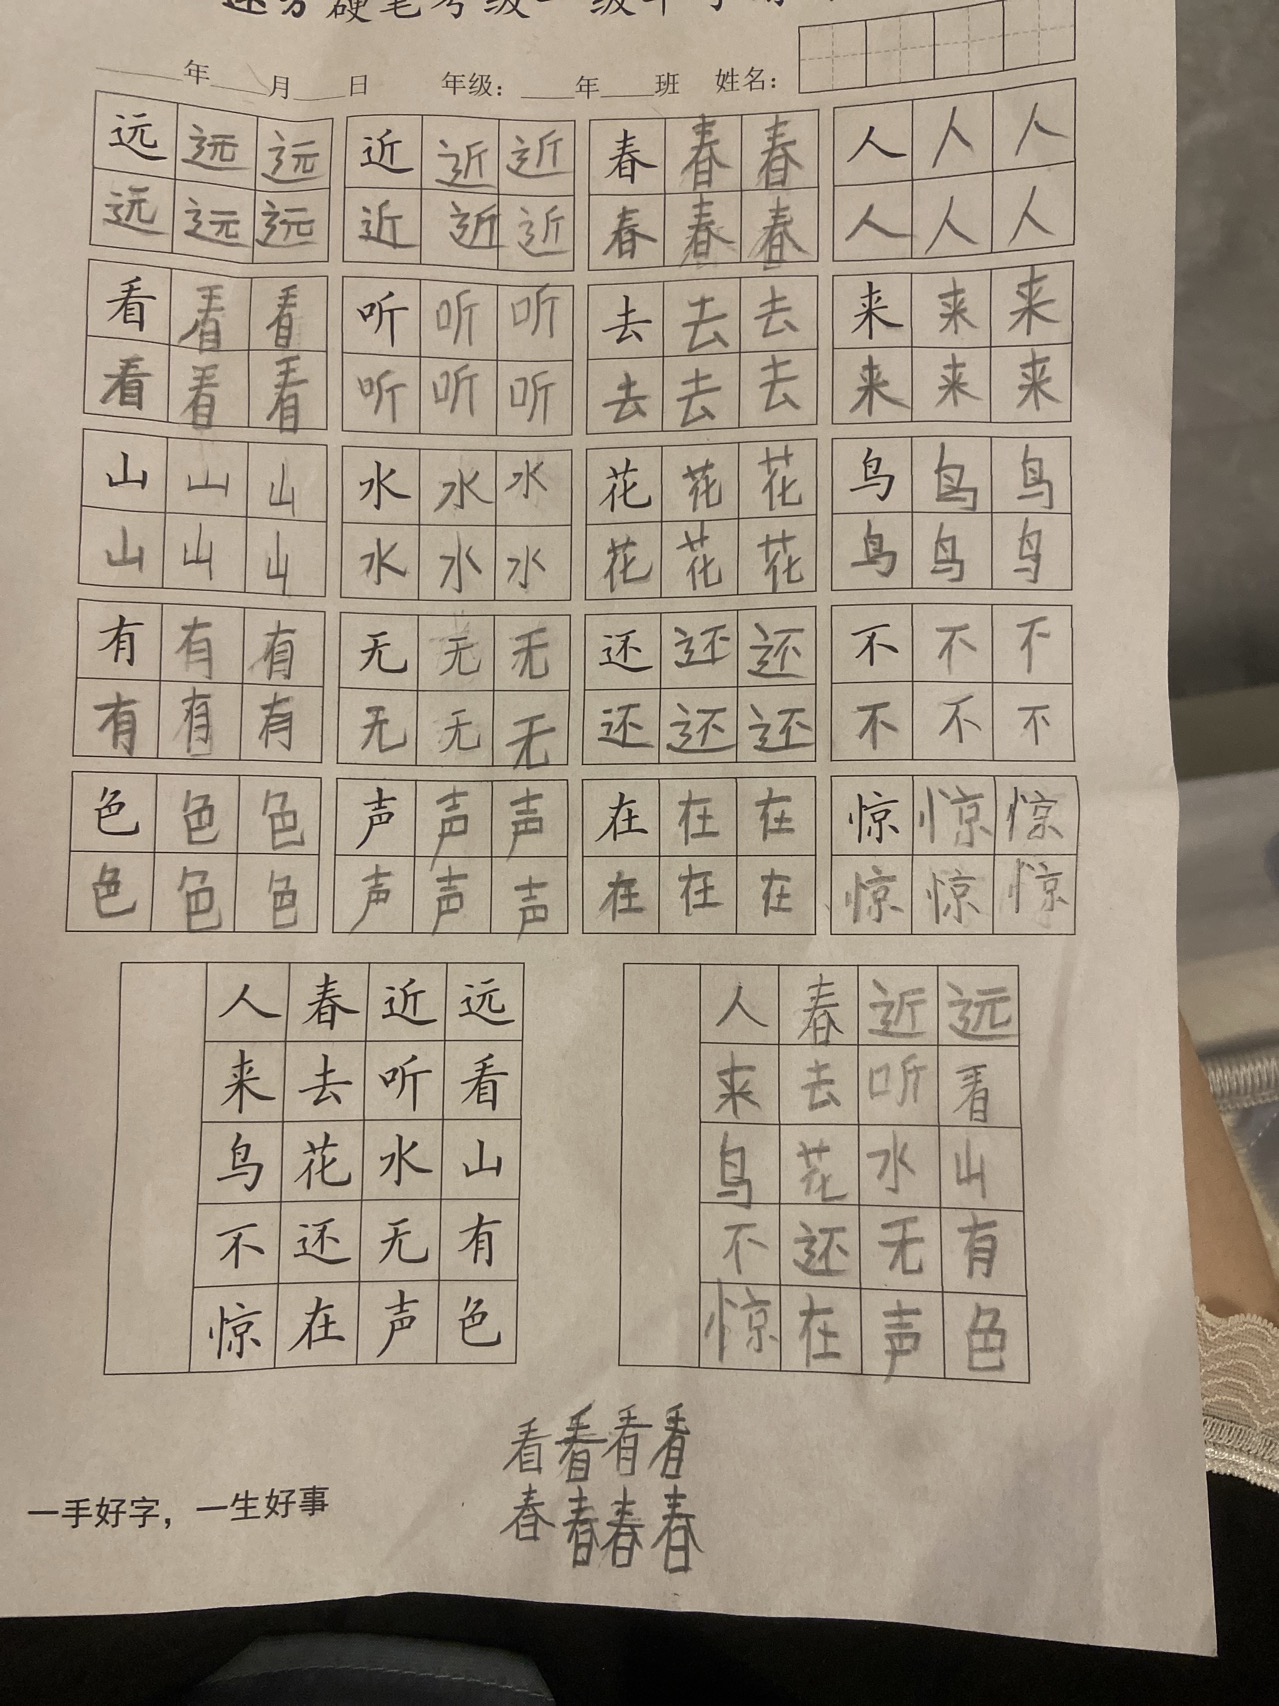 硬笔考级一级
年 月 日 年级： 年 班 姓名：
远远远 近近近 春春春 人人人
远远远 近近近 春春春 人人人
看看看 听听听 去去去 来来来
看看看 听听听 去去去 来来来
山山山 水水水 花花花 鸟鸟鸟
山山山 水水水 花花花 鸟鸟鸟
有有有 无无无 还还还 不不不
有有有 无无无 还还还 不不不
色色色 声声声 在在在 惊惊惊
色色色 声声声 在在在 惊惊惊
人春近远 人春近远
来去听看 来去听看
鸟花水山 鸟花水山
不还无有 不还无有
惊在声色 惊在声色
看看看看
春春春春
一手好字，一生好事